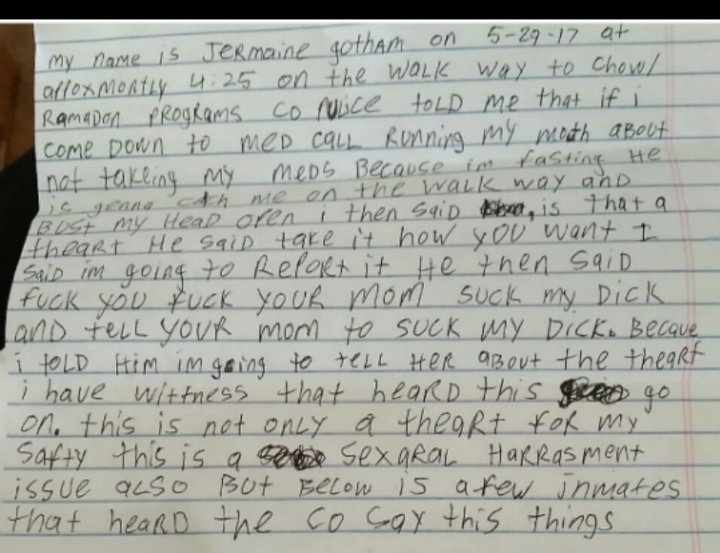 my name is JeRmaine gothAm on 5-29-17 at
alloxmontly 4:25 on the WALK WAY to Chow/
RamaDon PROgRAms CO told me that if i
come DOWN to meD call Running my moth aBout
not takeing my meDs Because im fasting He
is gonna me on the walk way anD
Bust my HeaD open i then said is that a
theaRt He saiD take it how you want I
SaiD im going to RepoRt it He then saiD
fuck you fuck youR mom suck my Dick
anD tell youR mom to suck my Dick. Becaue
i tolD Him im going to tell HeR aBout the theaRt
i have wittness that heaRD this go
on. this is not only a theaRt foR my
Safty this is a SexaRal HaRRasment
issue also But Below is a few inmates
that heaRD the CO say this things